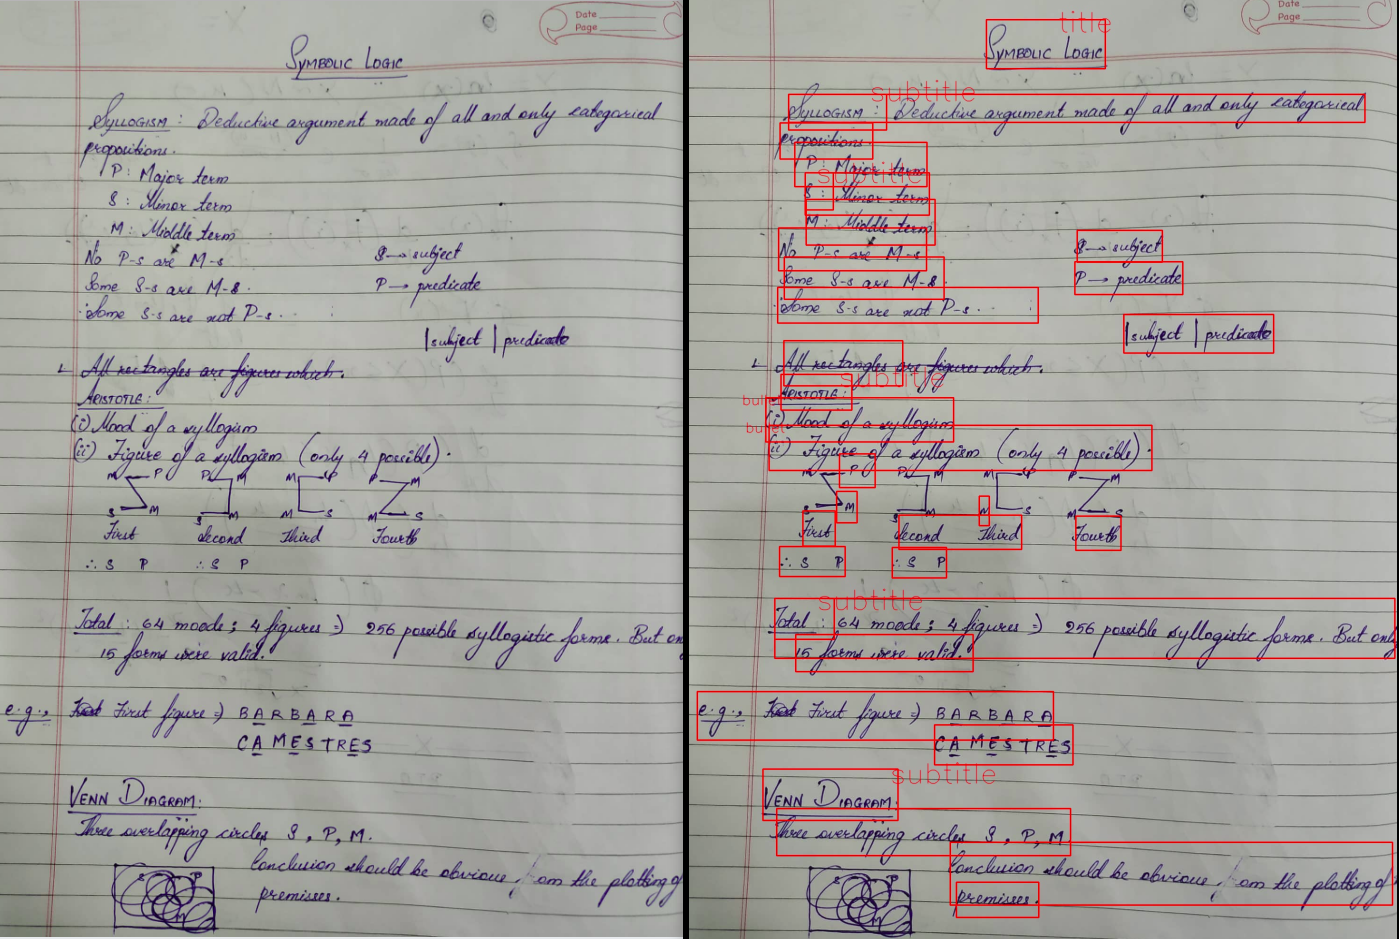 Date
Page
SYMBOLIC LOGIC
SYLLOGISM : Deductive argument made of all and only categorical
propositions.
P : Major term
S : Minor term
M : Middle term
No P-s are M-s
S → subject
Some S-s are M-s.
P → predicate
∴ Some S-s are not P-s.
|subject | predicate
All rectangles are figures which.
ARISTOTLE:
(i) Mood of a syllogism
(ii) Figure of a syllogism (only 4 possible).
M P P M M P P M
S M S M M S M S
First Second Third Fourth
∴ S P ∴ S P
Total : 64 moods; 4 figures ⇒ 256 possible syllogistic forms. But only
15 forms were valid.
e.g., First figure ⇒ BARBARA
CAMESTRES
VENN DIAGRAM:
Three overlapping circles S, P, M.
S P
M
Conclusion should be obvious from the plotting of
premisses.
Date
Page
title
SYMBOLIC LOGIC
subtitle
SYLLOGISM : Deductive argument made of all and only categorical
propositions.
P : Major term
subtitle
S : Minor term
M : Middle term
No P-s are M-s
S → subject
Some S-s are M-s
P → predicate
∴ Some S-s are not P-s.
|subject | predicate
All rectangles are figures which.
subtitle
ARISTOTLE:
bullet
(i) Mood of a syllogism
bullet
(ii) Figure of a syllogism (only 4 possible).
M P P M M P P M
S M S M M S M S
First Second Third Fourth
∴ S P ∴ S P
subtitle
Total : 64 moods; 4 figures ⇒ 256 possible syllogistic forms. But only
15 forms were valid.
e.g., First figure ⇒ BARBARA
CAMESTRES
subtitle
VENN DIAGRAM:
Three overlapping circles S, P, M
S P
M
Conclusion should be obvious from the plotting of
premisses.